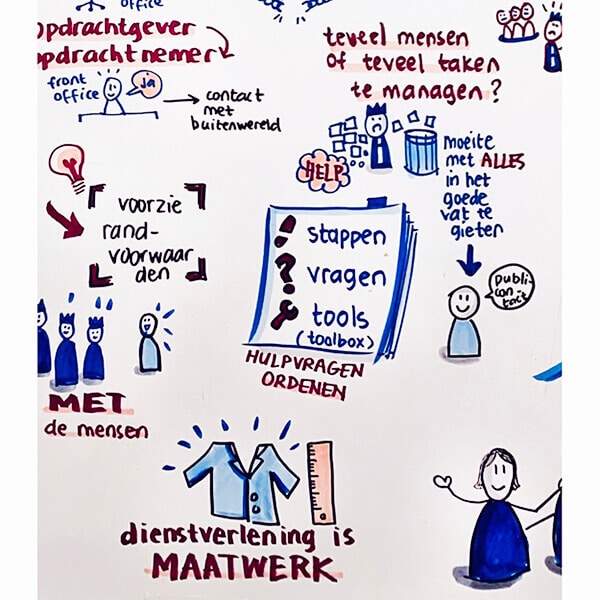 office
opdrachtgever
opdrachtnemer
front
office
ja
contact
met
buitenwereld
teveel mensen
of teveel taken
te managen?
HELP
moeite
met ALLES
in het
goede
vat te
gieten
voorzie
rand-
voorwaar
den
stappen
vragen
tools
(toolbox)
HULPVRAGEN
ORDENEN
publi-
can
tact
MET
de mensen
dienstverlening is
MAATWERK